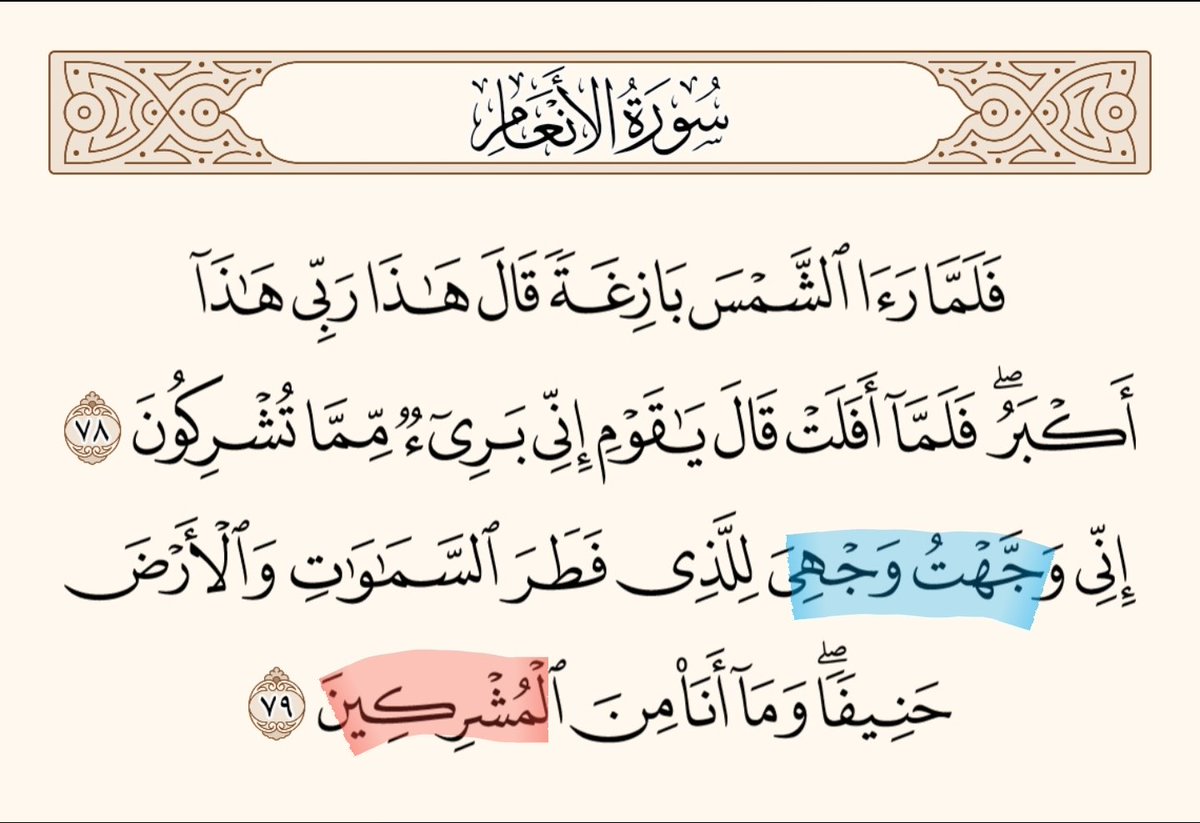 سُورَةُ الأَنْعَامِ
فَلَمَّا رَءَا ٱلشَّمْسَ بَازِغَةً قَالَ هَـٰذَا رَبِّى هَـٰذَآ
أَكْبَرُ ۖ فَلَمَّآ أَفَلَتْ قَالَ يَـٰقَوْمِ إِنِّى بَرِىٓءٌ مِّمَّا تُشْرِكُونَ ٧٨
إِنِّى وَجَّهْتُ وَجْهِىَ لِلَّذِى فَطَرَ ٱلسَّمَـٰوَٰتِ وَٱلْأَرْضَ
حَنِيفًا ۖ وَمَآ أَنَا۠ مِنَ ٱلْمُشْرِكِينَ ٧٩